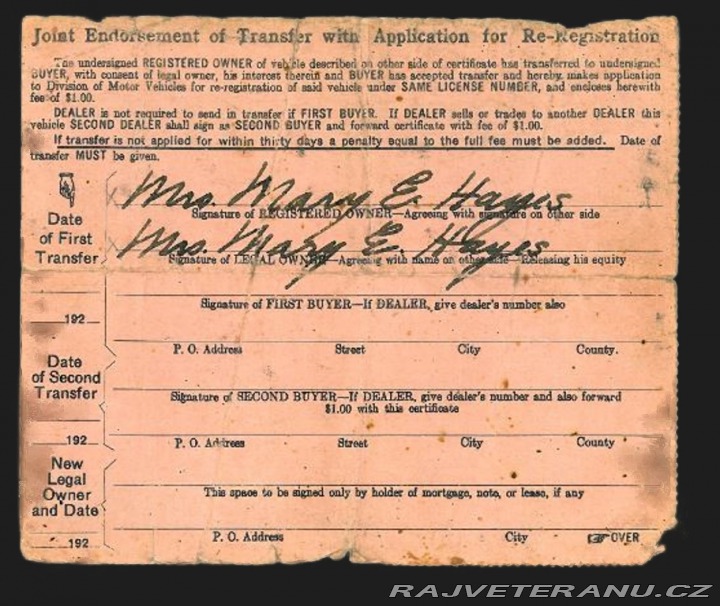 Joint Endorsement of Transfer with Application for Re-Registration
The undersigned REGISTERED OWNER of vehicle described on other side of certificate has transferred to undersigned
BUYER, with consent of legal owner, his interest therein and BUYER has accepted transfer and hereby makes application
to Division of Motor Vehicles for re-registration of said vehicle under SAME LICENSE NUMBER, and encloses herewith
fee of $1.00.
DEALER is not required to send in transfer if FIRST BUYER. If DEALER sells or trades to another DEALER this
vehicle SECOND DEALER shall sign as SECOND BUYER and forward certificate with fee of $1.00.
If transfer is not applied for within thirty days a penalty equal to the full fee must be added. Date of
transfer MUST be given.
Date
of First
Transfer
X Mrs. Mary E. Hayes
Signature of REGISTERED OWNER—Agreeing with signature on other side
X Mrs. Mary E. Hayes
Signature of LEGAL OWNER—Agreeing with name on other side—Releasing his equity
Signature of FIRST BUYER—If DEALER, give dealer's number also
192
P. O. Address Street City County.
Date
of Second
Transfer
Signature of SECOND BUYER—If DEALER, give dealer's number and also forward
$1.00 with this certificate
192
P. O. Address Street City County
New
Legal
Owner
and Date
This space to be signed only by holder of mortgage, note, or lease, if any
192
P. O. Address City ☞OVER
RAJVETERANU.CZ